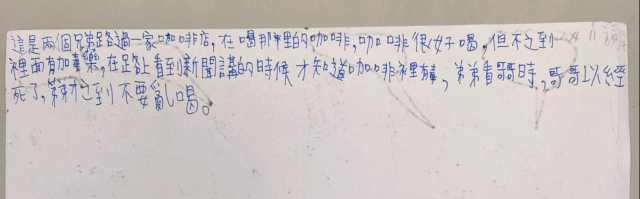 這是兩個兄弟路過一家咖啡店,在喝那裡的咖啡,咖啡很好喝,但不之到
裡面有加毒藥,在路上看到新聞講的時候才知道咖啡裡有毒,弟弟看哥哥時,哥哥以經
死了,弟才之到不要亂喝。